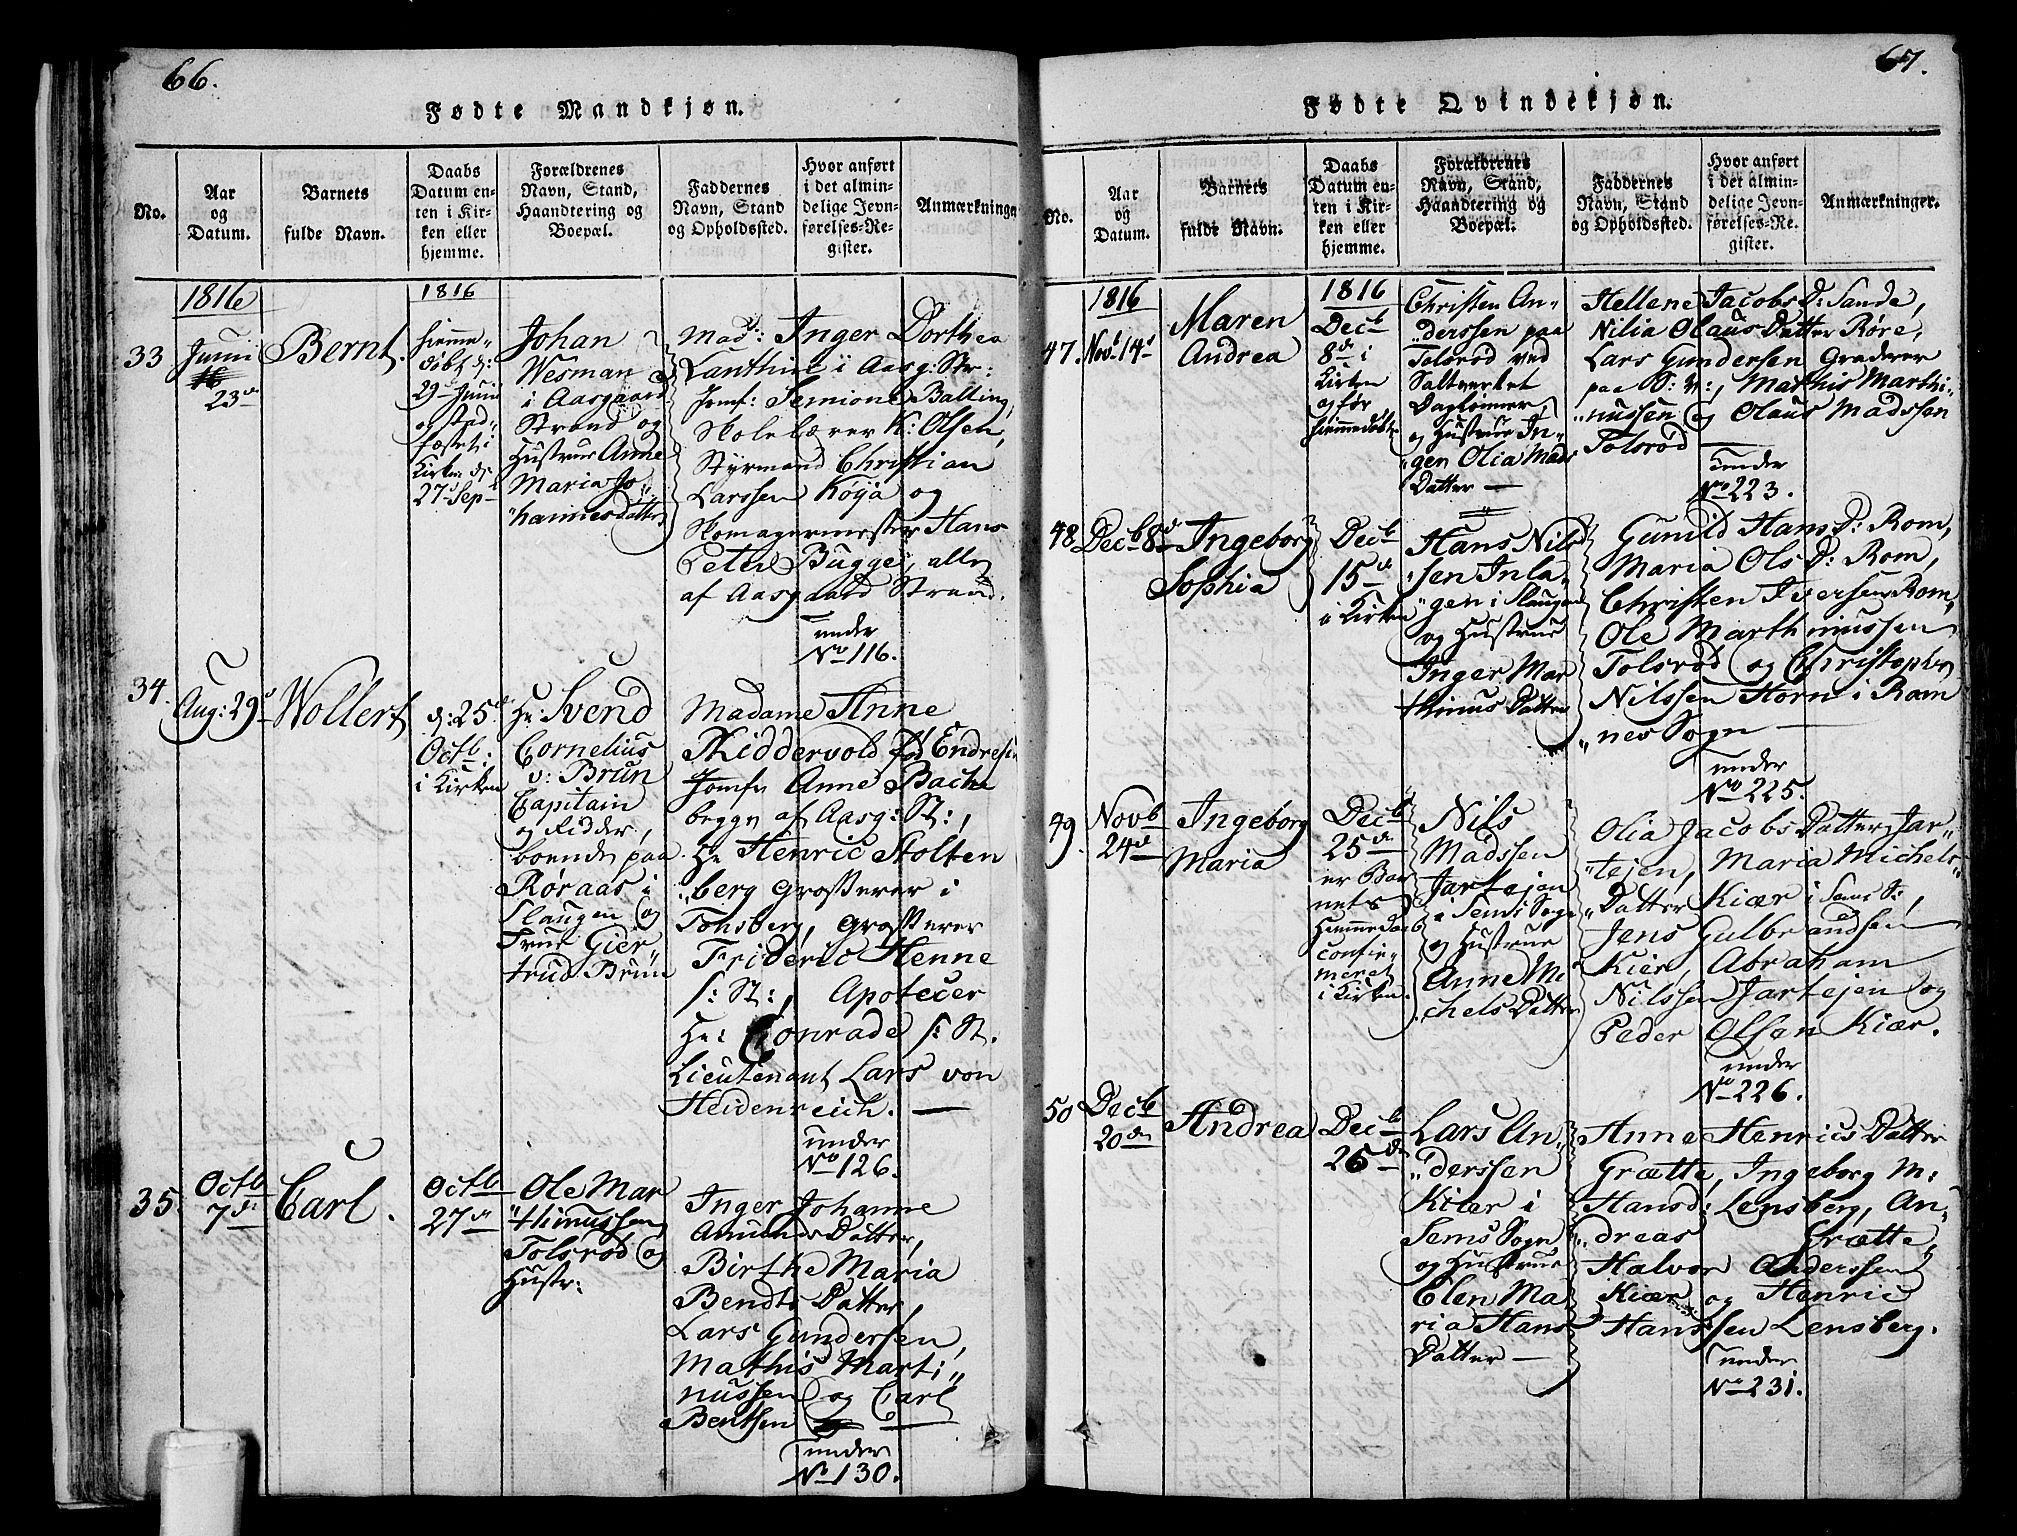 66.
Fødte Mandkjøn.
No.
Aar
og
Datum.
Barnets
fulde Navn.
Daabs
Datum en-
ten i Kir-
ken eller
hjemme.
Forældrenes
Navn, Stand,
Haandtering og
Boepæl.
Faddernes
Navn, Stand
og Opholdssted.
Hvor anført
i det almin-
delige Jevn-
førelses-Re-
gister.
Anmærkninger
1816
33
Junii
23d
Bernt.
1816
hiemme-
døbt d:
29 Junii
og stad-
fæstet i
Kirken d:
27 Sep
Johan
Wesman
i Aasgaard
Strand og
Hustrue Anne
Maria Jo„
„hannesdatter
Mad: Inger Dorthea
Lanthin i Aasg: Str:
Jomf: Semione Balling,
Skolelærer K: Olsen,
Styrmand Christian
Larssen Køya og
Skomagermester Hans
Peter Bugge, alle
af Aasgaard Strand.
under
No 116.
34.
Aug: 29
Wollert
d: 25
Octb:
i Kirken
Hr: Svend
Cornelius
v: Brun
Capitain
og Ridder,
boende paa
Røraas i
Slaugen og
Frue Gier
trud Brun
Madame Anne
Riddervold fød Endresen
Jomfr Anne Bache
begge af Aasg: St:,
Hr Henric Stolten
„berg Grosserer i
Tønsberg, Grosserer
Frideric Henne
s: St:, Apotecer
Hr: Conrade s: St.
Lieutenant Lars von
Heidenreich. —
under
No 126.
35.
Octb
7de
Carl.
Octb
27de
Ole Mar
„thinussen
Tolsrød og
Hustr:
Inger Johanne
Amunds Datter,
Birthe Maria
Bendts Datter,
Lars Gundersen,
Mathis Marti„
nussen og Carl
Bentsen
under
No 130.
67.
Fødte Qvindekjøn.
No.
Aar
og
Datum.
Barnets
fulde Navn.
Daabs
Datum en-
ten i Kir-
ken eller
hjemme.
Forældrenes
Navn, Stand,
Haandtering og
Boepæl.
Faddernes
Navn, Stand
og Opholdssted.
Hvor anført
i det almin-
delige Jevn-
førelses-Re-
gister.
Anmærkninger.
1816
47.
Novb 14d
Maren
Andrea
1816
Decb
8d i
Kirken
og før
hiemmedøbt
Christen An-
„derssen paa
Tolsrød ved
Saltverket
Daglønner,
og Hustrue In-
„gen Olia Mads
Datter —
Hellene Jacobs D: Sande,
Nilia Olaus Datter Røre,
Lars Gundersen Graderer
paa S: V:, Mathis Marthi-
„nussen og Olaus Madssen
Tolsrød
under
No 223.
48.
Decb 8d
Ingeborg
Sophia
Decb
15d
i Kirken
Hans Nils
„sen Inla-
„gen i Slaugen
og Hustrue
Inger Mar
thinus Datter
Gunild Hans D: Rom,
Maria Ols D: Rom,
Christen Iversen Rom,
Ole Marthinussen
Tolsrød og Christopher
Nilssen Horn i Ram
„nes Sogn —
under
No 225.
49.
Novb
24d
Ingeborg
Maria
Decb
25d
er Bar
nets
Hiemmedaab
confir-
meret
i Kirken.
Nils
Madssen
Jartejen
i Sems Sogn
og Hustrue
Anne Mi
chels Datter
Olia Jacobs Datter Jar-
„tejen, Maria Michels
„Datter Kiær i Sems S:,
Jens Gulbrandsen
Kiær, Abraham
Nilssen Jartejen og
Peder Olsen Kiær.
under
No 226.
50
Decb
20d
Andrea
Decb
26d
Lars An„
„derssen
Kiær i
Sems Sogn
og Hustrue
Elen Ma
ria Hans
Datter —
Anne Henrics Datter
Grætte, Ingeborg M:
Hansd: Lensberg, An„
„dreas Grætte,
Halvor Anderssen
Kiær og Henric
Hanssen Lensberg.
under
No 231.